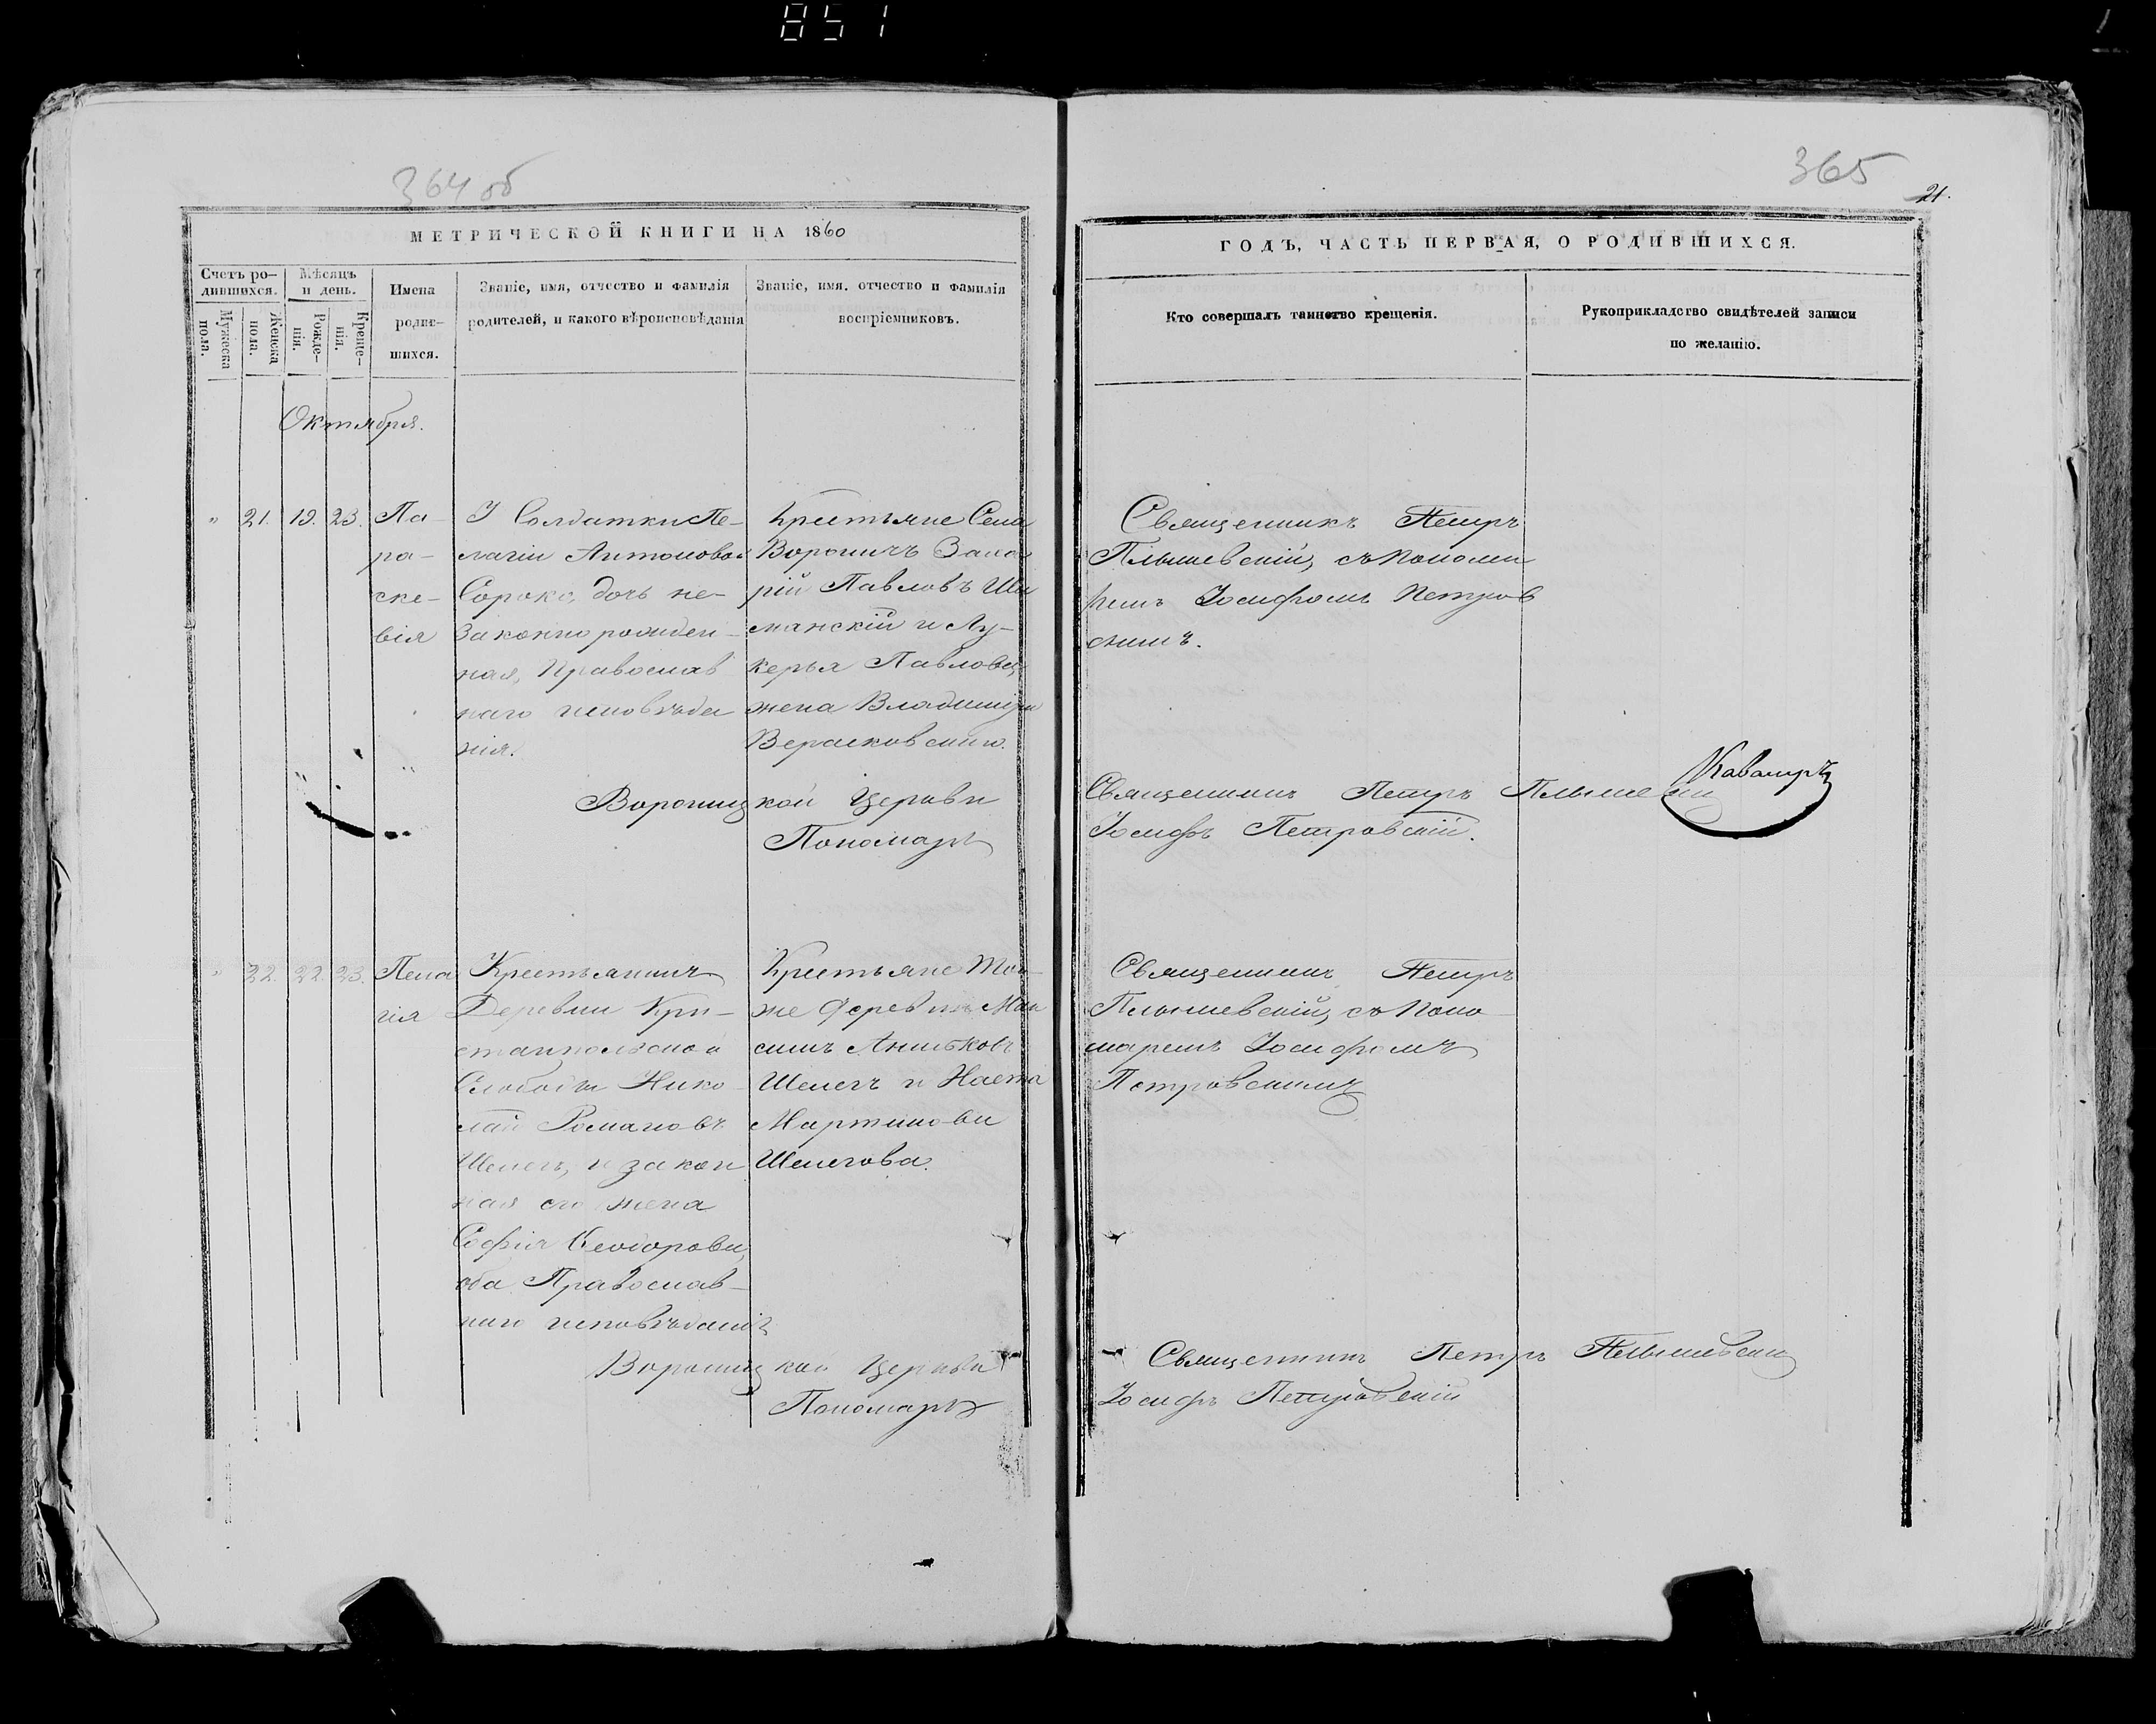 851
364 об
МЕТРИЧЕСКОЙ КНИГИ НА 1860
Счетъ ро-
дившихся.
Мужеска
пола.
Женска
пола.
Мѣсяцъ
и день.
Рожде-
нія.
Креще-
нія.
Имена
родив-
шихся.
Званіе, имя, отчество и фамилія
родителей, и какого вѣроисповѣданія
Званіе, имя, отчество и фамилія
воспріемниковъ.
Октября.
" 21. 19. 23.
Па-
ра-
ске-
вія
У Солдатки Пе-
лагіи Антоновой
Сорока, дочь не-
законнорожден-
ная, Православ
наго исповѣда
нія.
Крестьяне
Вороничъ
рій Павловъ
манскій и Лу-
керья Павлова,
жена Владиміра
Вераковскаго.
Вороницкой Церкви
Пономарь
" 22. 22. 23.
Пела
гія
Крестьянинъ
Деревни Кри-
станпольской
Слободы Нико-
лай Романовъ
Шелегъ, и закон
ная его жена
Софія Ѳеодорова,
оба Православ-
наго исповѣданія
Крестьяне Той-
же деревни Мак
симъ
Шелегъ и Наста
Мартинова
Шелегова.
Вороницкой Церкви
Пономарь
365
21.
ГОДЪ, ЧАСТЬ ПЕРВАЯ, О РОДИВШИХСЯ.
Кто совершалъ таинство крещенія.
Рукоприкладство свидѣтелей записи
по желанію.
Священникъ Петръ
съ Понома
ремъ Іосифомъ Петров
скимъ.
Священникъ Петръ
Іосифъ Петровскій.
Священникъ Петръ
съ Поно
маремъ Іосифомъ
Петровскимъ
Священникъ Петръ
Іосифъ Петровскій